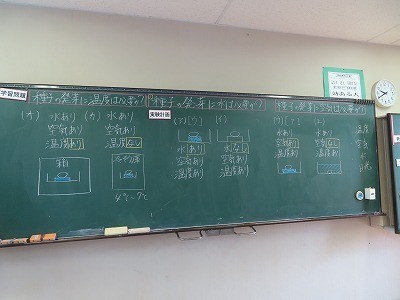 学習問題
種子の発芽に温度は必要か?
(オ) (カ)
水あり 水あり
空気あり 空気あり
温度あり 温度なし
箱
4℃~7℃
種子の発芽に水は必要か?
実験計画
(ア) (イ)
水あり 水なし
空気あり 空気あり
温度あり 温度あり
種子の発芽に空気は必要か?
(ウ) (エ)
水あり 水あり
空気あり 空気なし
温度あり 温度あり
温度
空気
水